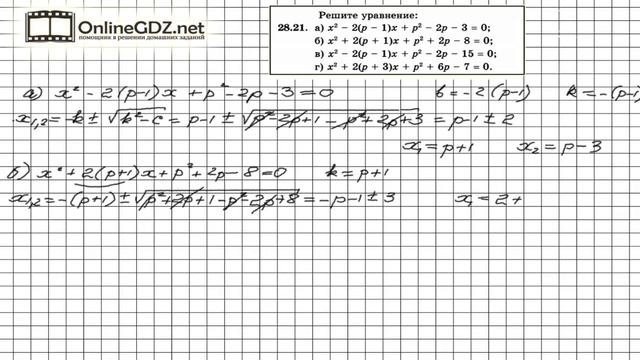 OnlineGDZ.net
помощник в решении домашних заданий
Решите уравнение:
28.21. а) x² − 2(p − 1)x + p² − 2p − 3 = 0;
б) x² + 2(p + 1)x + p² + 2p − 8 = 0;
в) x² − 2(p − 1)x + p² − 2p − 15 = 0;
г) x² + 2(p + 3)x + p² + 6p − 7 = 0.
а) x² − 2(p−1)x + p² − 2p − 3 = 0 b = −2(p−1) k = −(p−1
x₁,₂ = −k ± √k² − c = p−1 ± √p² − 2p + 1 − p² + 2p + 3 = p−1 ± 2
x₁ = p+1 x₂ = p−3
б) x² + 2(p+1)x + p² + 2p − 8 = 0 k = p+1
x₁,₂ = −(p+1) ± √p² + 2p + 1 − p² − 2p + 8 = −p−1 ± 3 x₁ = 2 +